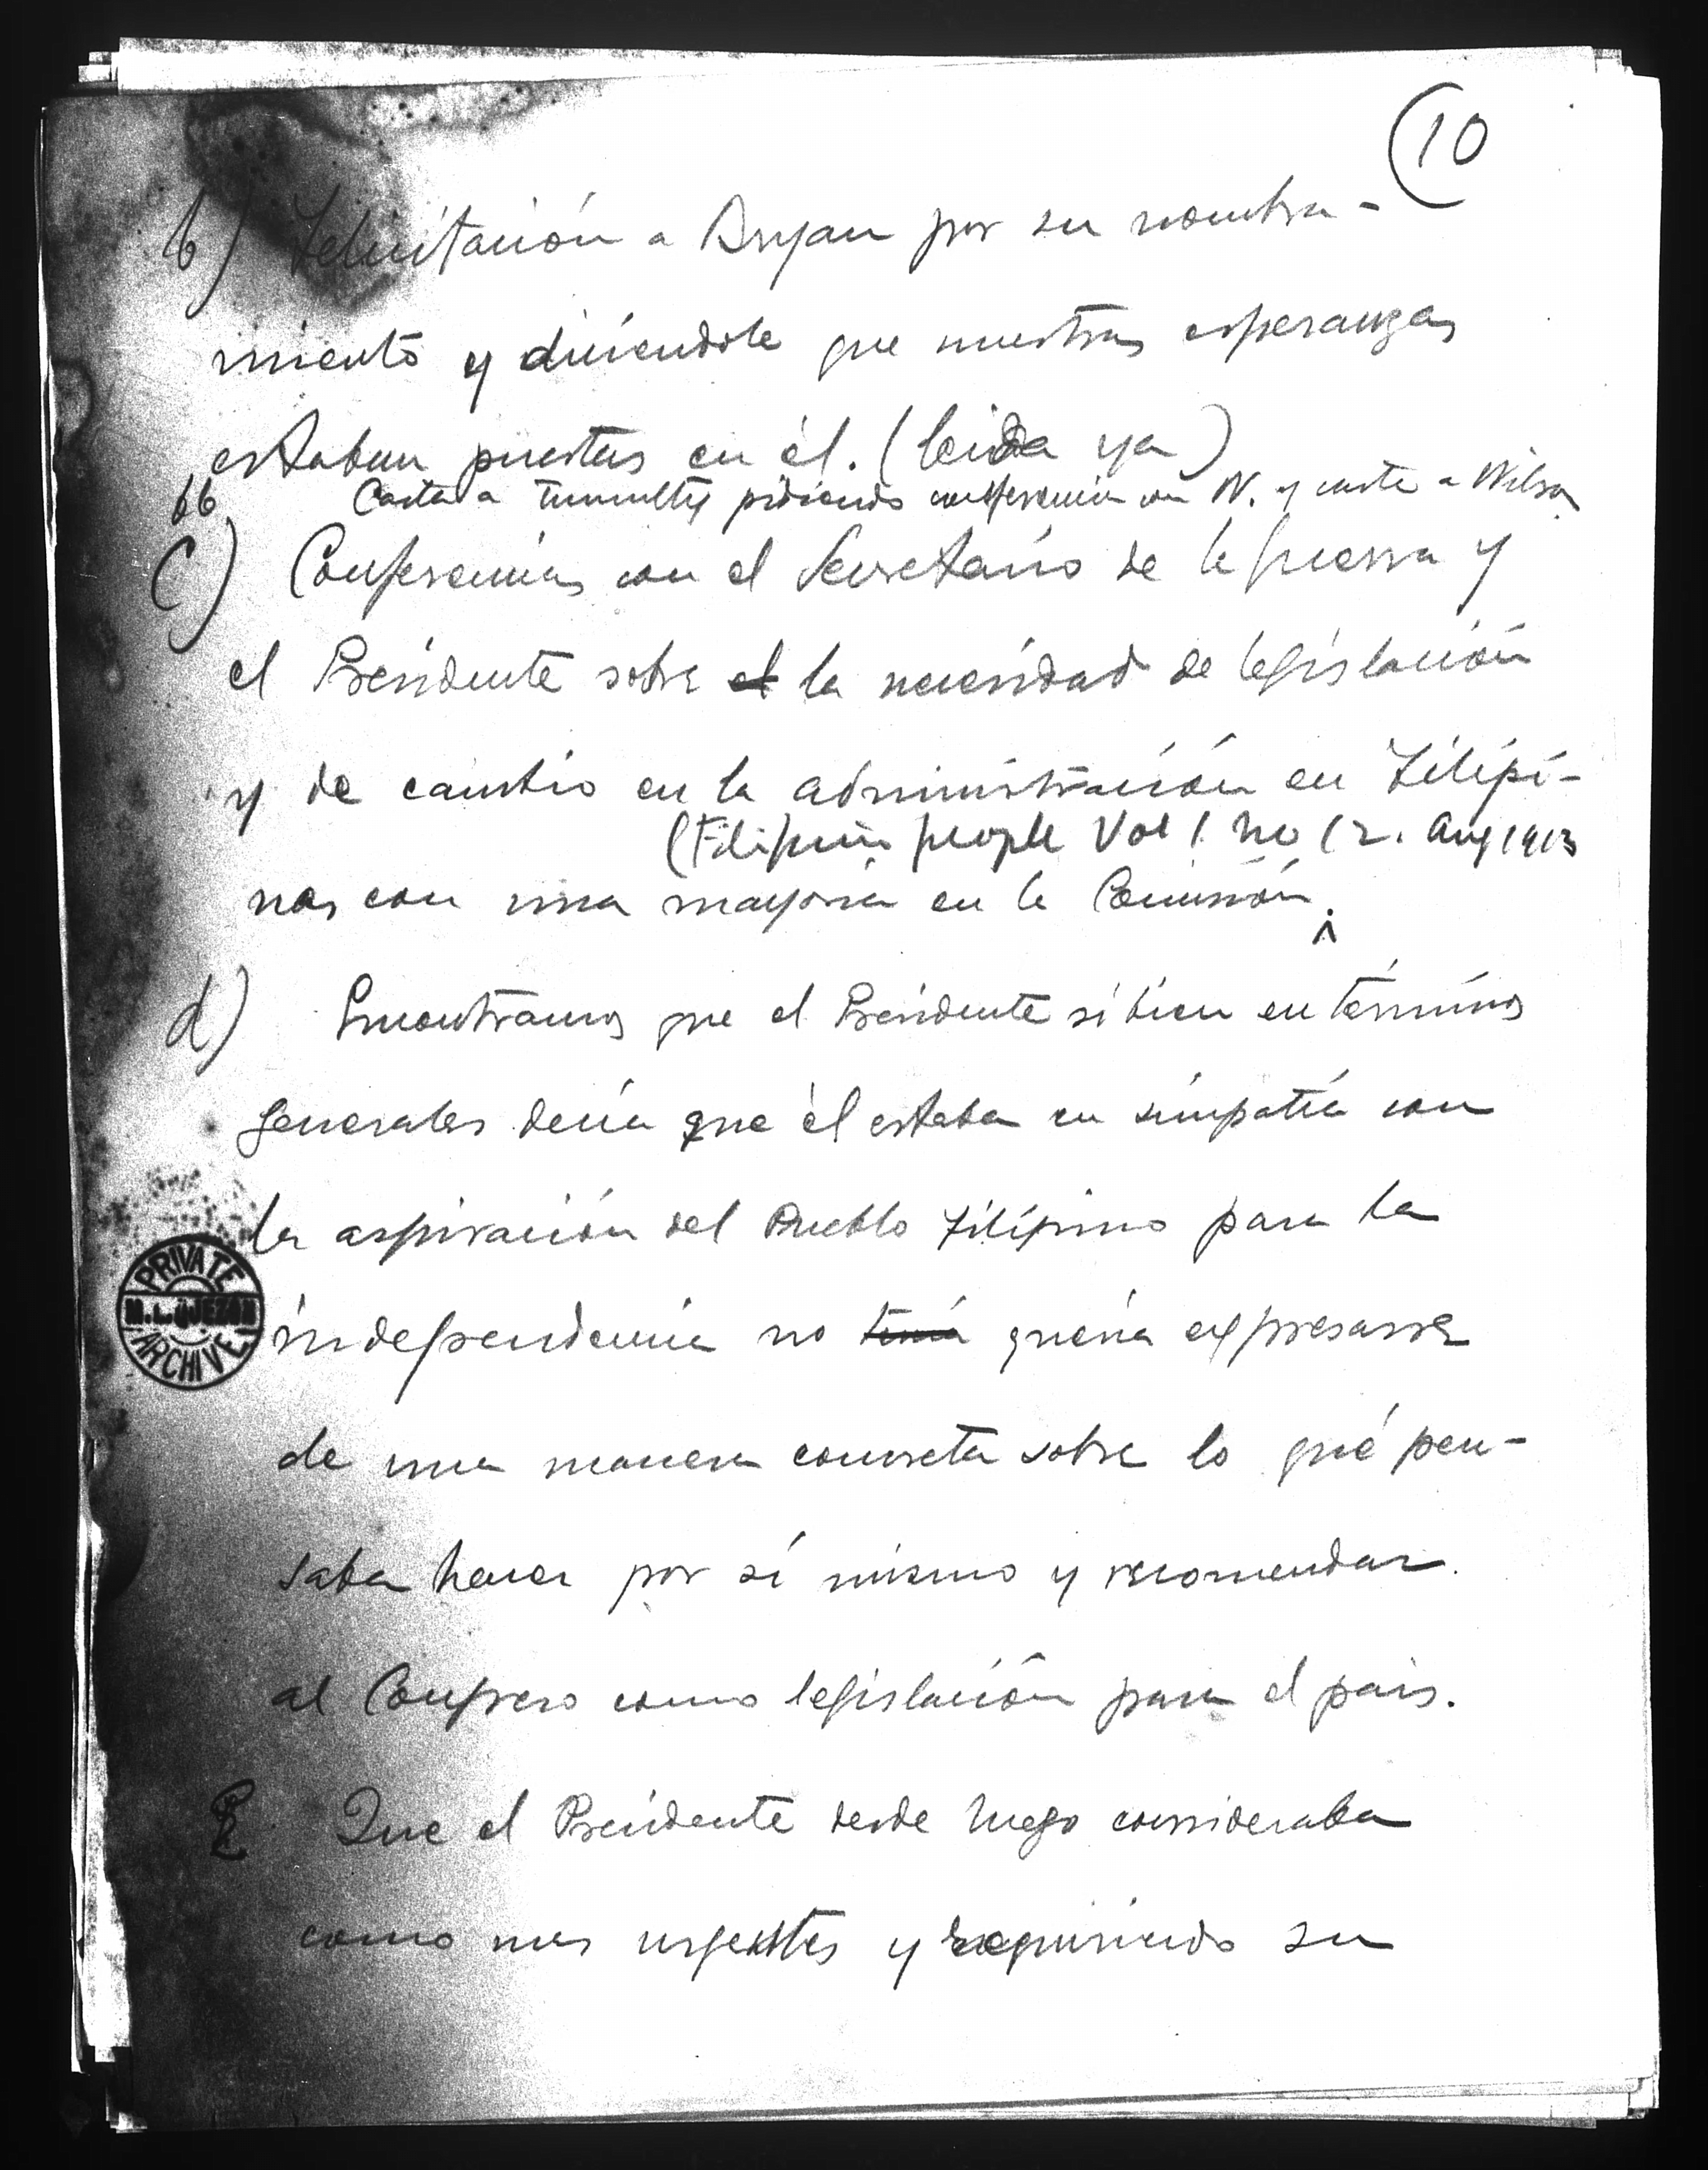 10
b) Felicitación a Bryan por su nombra-
miento y diciendole que nuestras esperanzas
estaban puestas en él. (leida ya)
bb Carta a Tumulty pidiendo conferencia con W. y carta a Wilson
c) Conferencias con el Secretario de la Guerra y
el Presidente sobre el la necesidad de legislación
y de cambio en la administración en Filipi-
(Filipino people Vol 1 No 12. Aug 1913
nas con una mayoria en la Comisión.
d) Encontramos que el Presidente si bien en términos
generales decia que él estaba en simpatia con
la aspiración del Pueblo Filipino para la
independencia no tenia queria expresarse
de una manera concreta sobre lo qué pen-
saba hacer por sí mismo y recomendar
al Congreso como legislación para el pais.
PRIVATE
M. L. QUEZON
ARCHIVE
Que el Presidente desde luego consideraba
como mas urgentes y requiriendo su